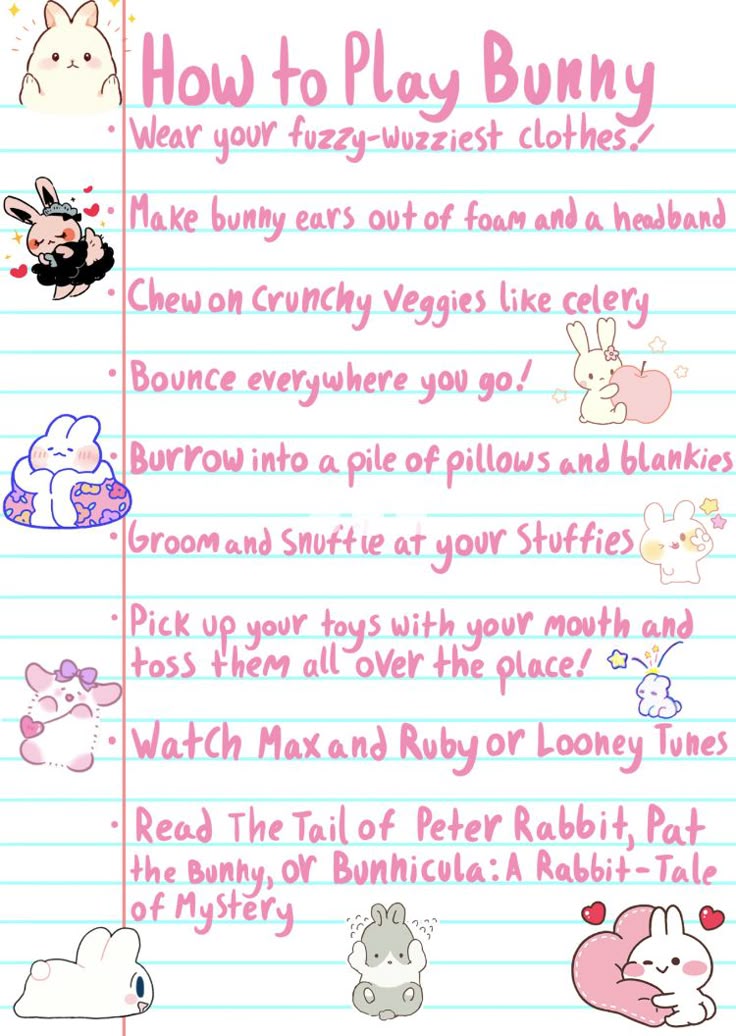 How to Play Bunny
• Wear your fuzzy-wuzziest clothes!
• Make bunny ears out of foam and a headband
• Chew on crunchy veggies like celery
• Bounce everywhere you go!
• Burrow into a pile of pillows and blankies
• Groom and snuffle at your stuffies
• Pick up your toys with your mouth and
toss them all over the place!
• Watch Max and Ruby or Looney Tunes
• Read The Tail of Peter Rabbit, Pat
the Bunny, or Bunnicula: A Rabbit-Tale
of Mystery